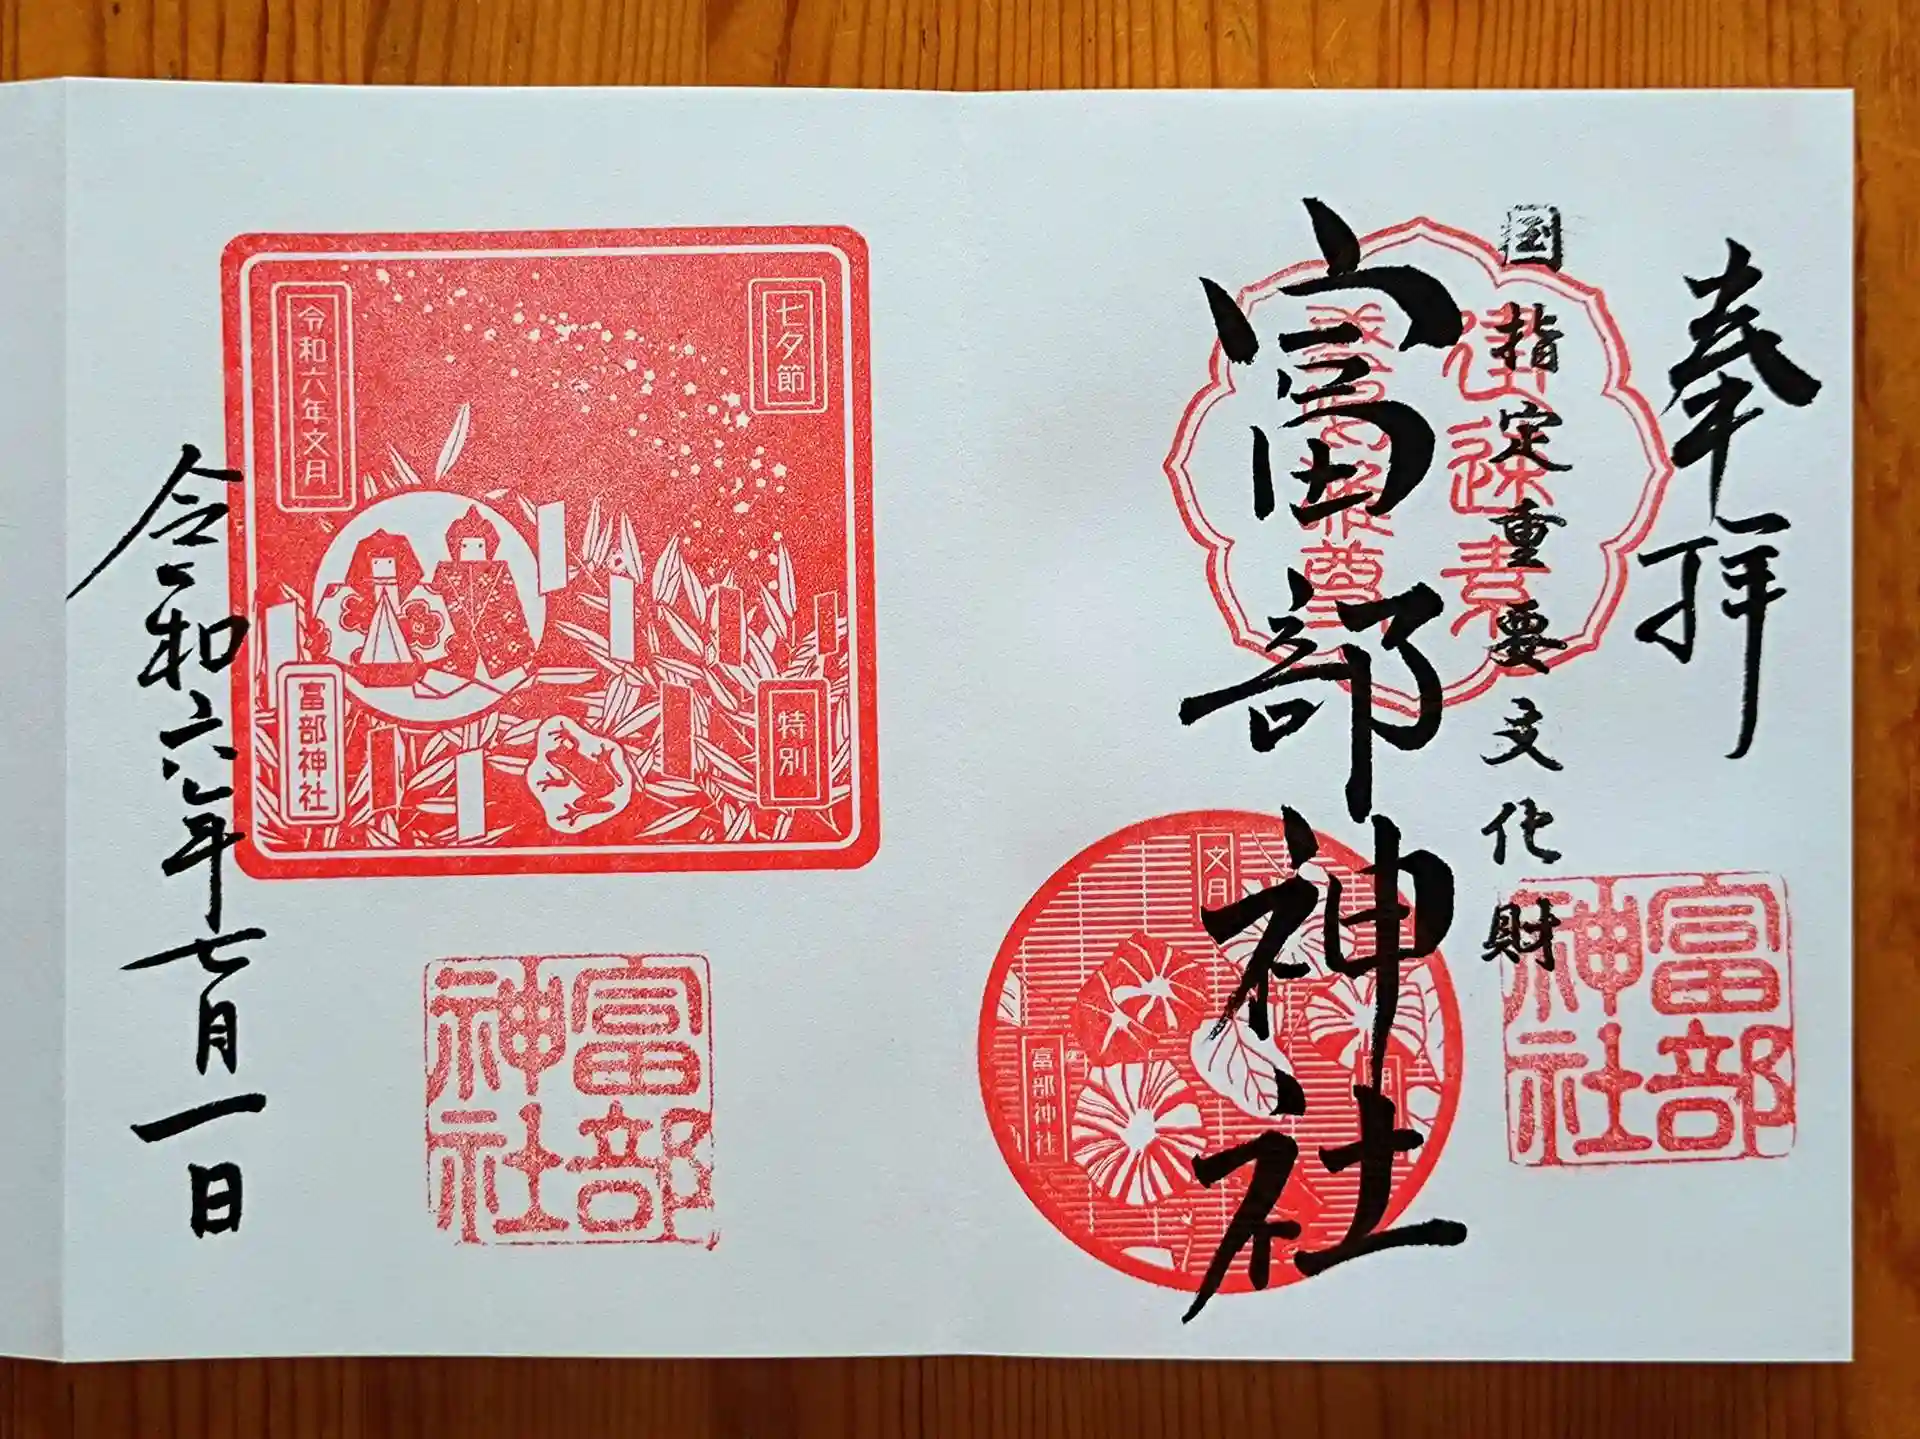 奉拝
国指定重要文化財
富部神社
富部神社
文月
富部神社
七夕節
特別
令和六年文月
富部神社
富部神社
令和六年七月一日